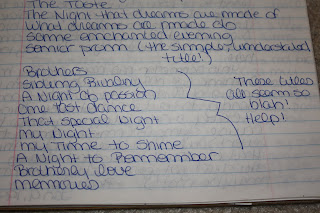 The Taste
The Night that dreams are made of
what dreams are made do
some enchanted evening
senior prom (the simple, understated
title!)
Brothers
Sibling Rivalry
A Night of passion
One last dance
That special Night
my Night
my Time to Shine
A Night to Remember
Brotherly love
memories
These titles
all seem so
blah!
Help!